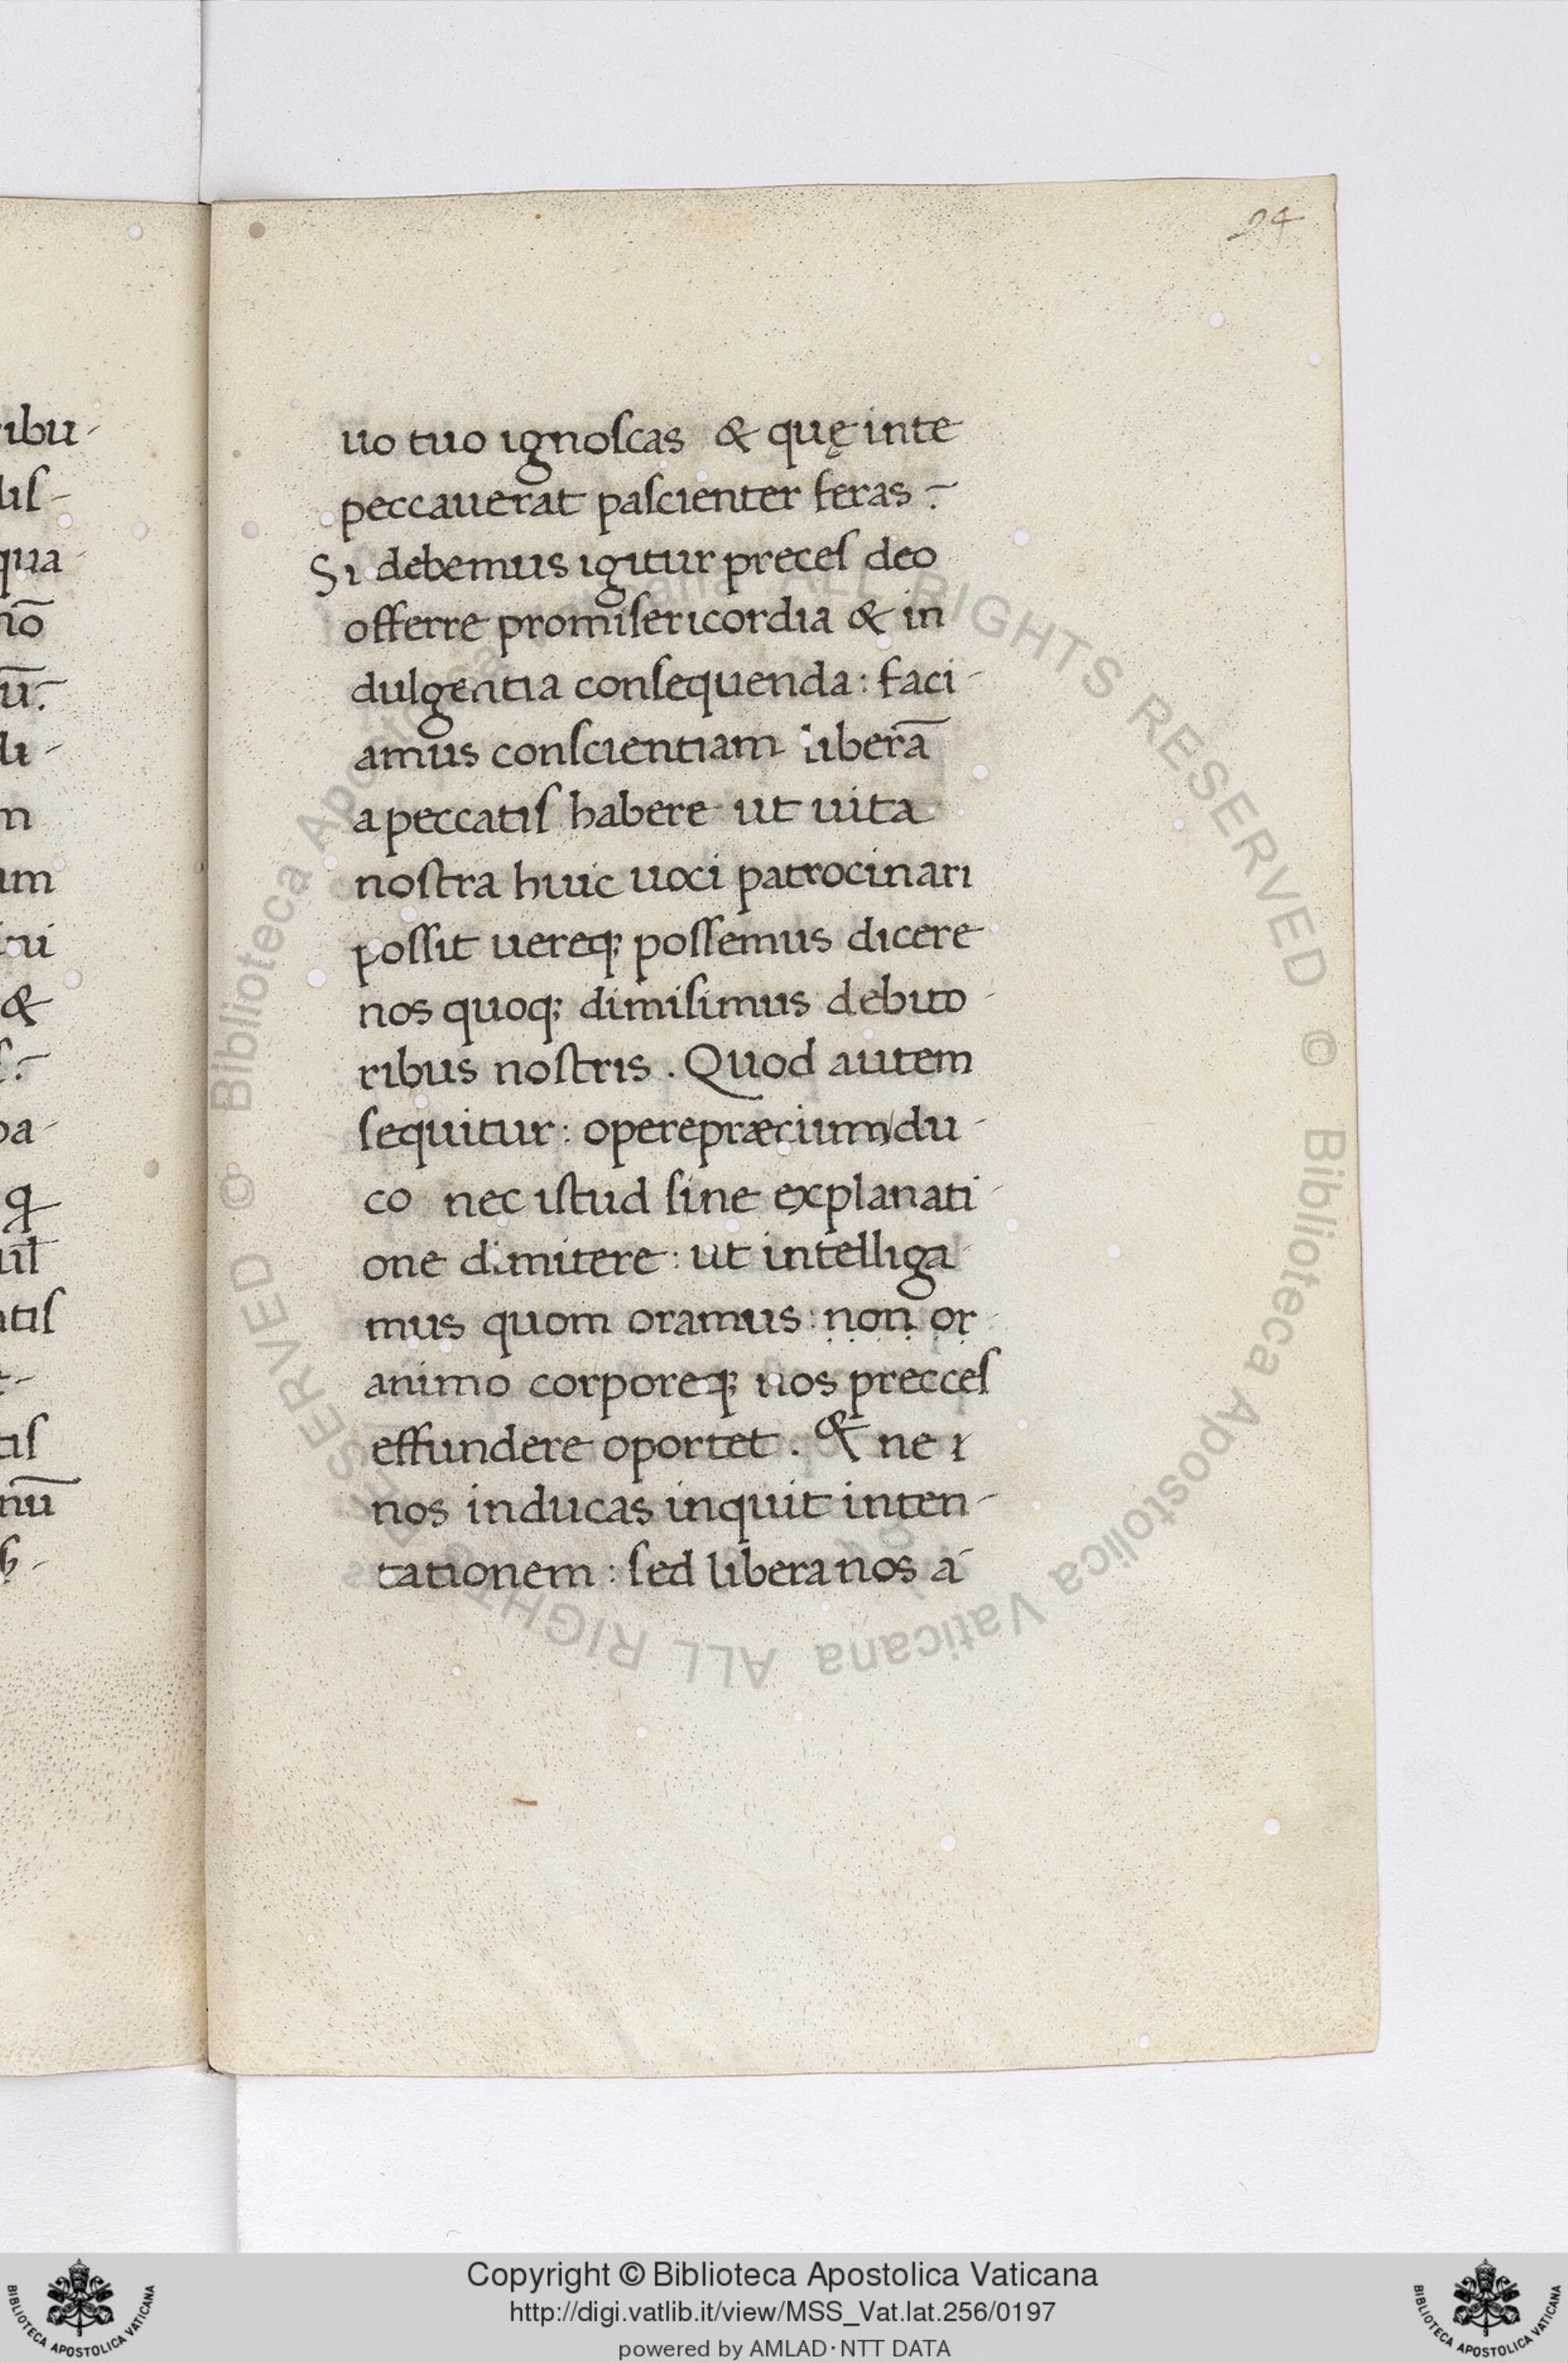 ibu-
lis-
qua-
nō
ū.
di-
m
um
tui
&
s.
pa-
q
uil
atis
t-
tis
nū
b-
94
uo tuo ignoscas & quę inte
peccauerat pascienter feras.
Si debemus igitur preces deo
offerre promisericordia & in
dulgentia consequenda: faci-
amus conscientiam liberā
apeccatis habere ut uita
nostra huic uoci patrocinari
possit uereq; possemus dicere
nos quoq; dimisimus debito-
ribus nostris. Quod autem
sequitur: operepræcium du-
co nec istud sine explanati-
one dimitere: ut intelliga-
mus quom oramus: non or
animo corporeq; nos precces
effundere oportet. & ne ı
nos inducas inquit inten-
tationem: sed libera nos á
© Biblioteca Apostolica Vaticana ALL RIGHTS RESERVED
© Biblioteca Apostolica Vaticana ALL RIGHTS RESERVED
Copyright © Biblioteca Apostolica Vaticana
http://digi.vatlib.it/view/MSS_Vat.lat.256/0197
powered by AMLAD·NTT DATA
BIBLIOTECA APOSTOLICA VATICANA
BIBLIOTECA APOSTOLICA VATICANA